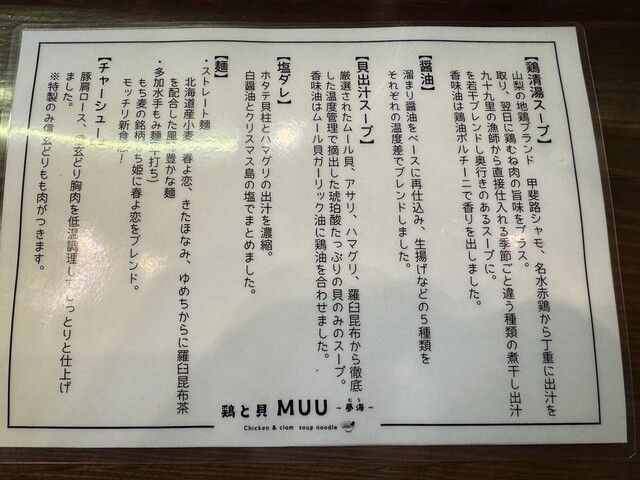 【鶏清湯スープ】
山梨の地鶏ブランド 甲斐路シャモ、名水赤鶏から丁重に出汁を
取り、翌日に鶏むね肉の旨味をプラス。
九十九里の漁師から直接仕入れる季節ごと違う種類の煮干し出汁
を若干ブレンドし奥行きのあるスープに。
香味油は鶏油ポルチーニで香りを出しました。
【醤油】
溜まり醤油をベースに再仕込み、生揚げなどの5種類を
それぞれの温度差でブレンドしました。
【貝出汁スープ】
厳選されたムール貝、アサリ、ハマグリ、羅臼昆布から徹底
した温度管理で摘出した琥珀酸たっぷりの貝のみのスープ。
香味油はムール貝ガーリック油に鶏油を合わせました。
【塩ダレ】
ホタテ貝柱とハマグリの出汁を濃縮。
白醤油とクリスマス島の塩でまとめました。
【麺】
・ストレート麺
北海道産小麦、春よ恋、きたほなみ、ゆめちからに羅臼昆布茶
を配合した風 豊かな麺
・多加水手もみ麺 打ち)
もち麦の銘柄 ち姫に春よ恋をブレンド。
モッチリ新食 !
【チャーシュー
豚肩ロース、 玄どり胸肉を低温調理し っとりと仕上げ
ました。
※特製のみ信玄どりもも肉がつきます。
鶏と貝 MUU ~夢海~
むう
Chicken & clam soup noodle